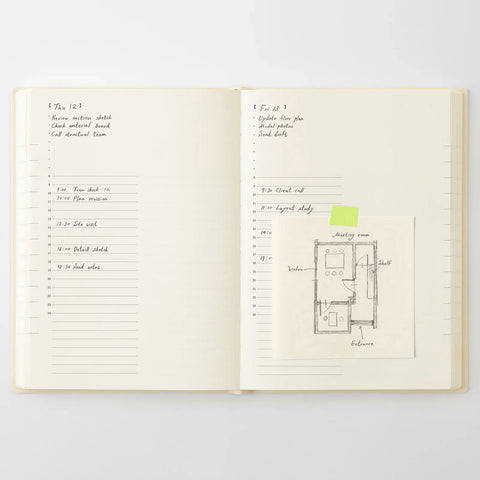 [Thu 12]
· Review section sketch
· Check material board
· Call structural team
9:00 Team check-in
10:00 Plan revision
13:30 Site visit
16:00 Detail sketch
18:30 Send notes
[Fri 13]
· Update floor plan
· Model photos
· Send draft
9:30 Client call
11:00 Layout study
Meeting room
Shelf
Entrance